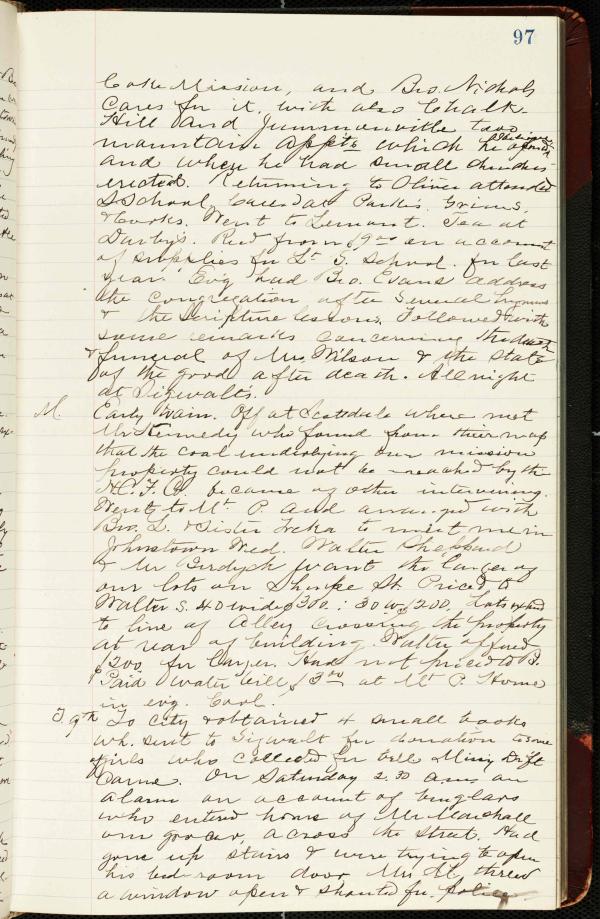 97
Coke Mission, and Bro. Nichols
cares for it, with also Chalk-
Hill and Jummonville two
mountain appts which he opened
and where he had small churches
erected. Returning to Oliver attended
S School, Called at Parkis, Grims,
& Corks. Went to Lemont. Tea at
Darby's. Recd from 19 on account
of supplies for Lt S. School. for last
year. Ev'g had Bro. Evans address
the congregation after several hymns
& the Scripture lesson. Followed with
some remarks concerning the death
& funeral of Mrs. Wilson & the state
of the good after death. All night
at Sigwalt's.
M. Early train. Off at Scottdale where met
Mr Kennedy who found from their map
that the coal underlying our mission
property could not be reached by the
H.C.F. Co because of other intervening.
Went to Mt. P. and arranged with
Bro. L. & Sister to meet me in
Johnstown Wed. Walter Sheppard
& Mr want the larger of
our lots on Shupe St. Priced to
Walter S. 40 wide $300.: 30 w. $200. Lots extend
to line of Alley crossing the property
at rear of building. Walter offered
$200 for larger. Had not priced to B.
Paid water bill $3.00 at Mt P. Home
in evg. Cool.
T. 9th To City & obtained 4 small books
wh. sent to Sigwalt for donation to some
of girls who collected for bell Miss Drift
came. On Saturday 2.30 a.m. an
alarm on account of burglars
who entered home of Mr Marshall
our grocer, across the street. Had
gone up stairs & were trying to open
his bed-room door. Mrs M. threw
a window open & shouted for police